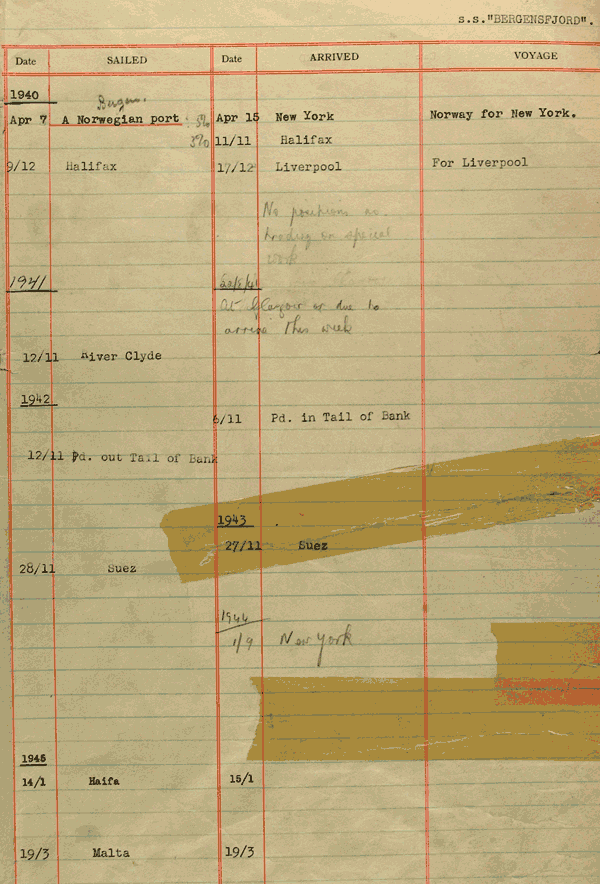 s.s."BERGENSFJORD".
Date SAILED Date ARRIVED VOYAGE
1940
Bergen.
Apr 7 A Norwegian port Apr 15 New York Norway for New York.
11/11 Halifax
9/12 Halifax 17/12 Liverpool For Liverpool
No positions as
trading on special
work
1941
At Glasgow or due to
arrive this week
12/11 River Clyde
1942
6/11 Pd. in Tail of Bank
12/11 Pd. out Tail of Bank
1943
27/11 Suez
28/11 Suez
1944
1/9 New York
1945
14/1 Haifa 15/1
19/3 Malta 19/3